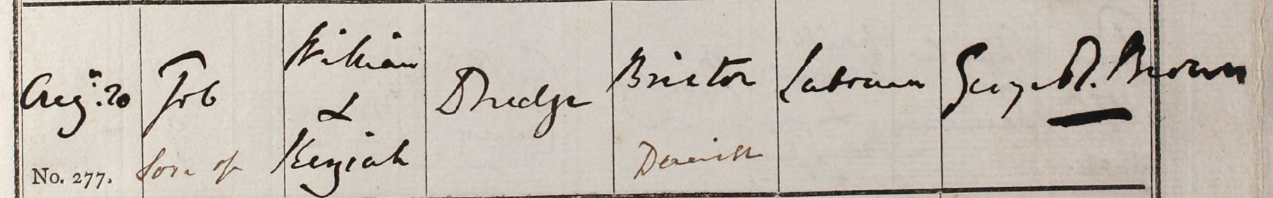 Aug.ᵗ 20
No. 277.
Job
son of
William
&
Keziah
Dredge
Brixton
Deverill
Labourer
George Brown